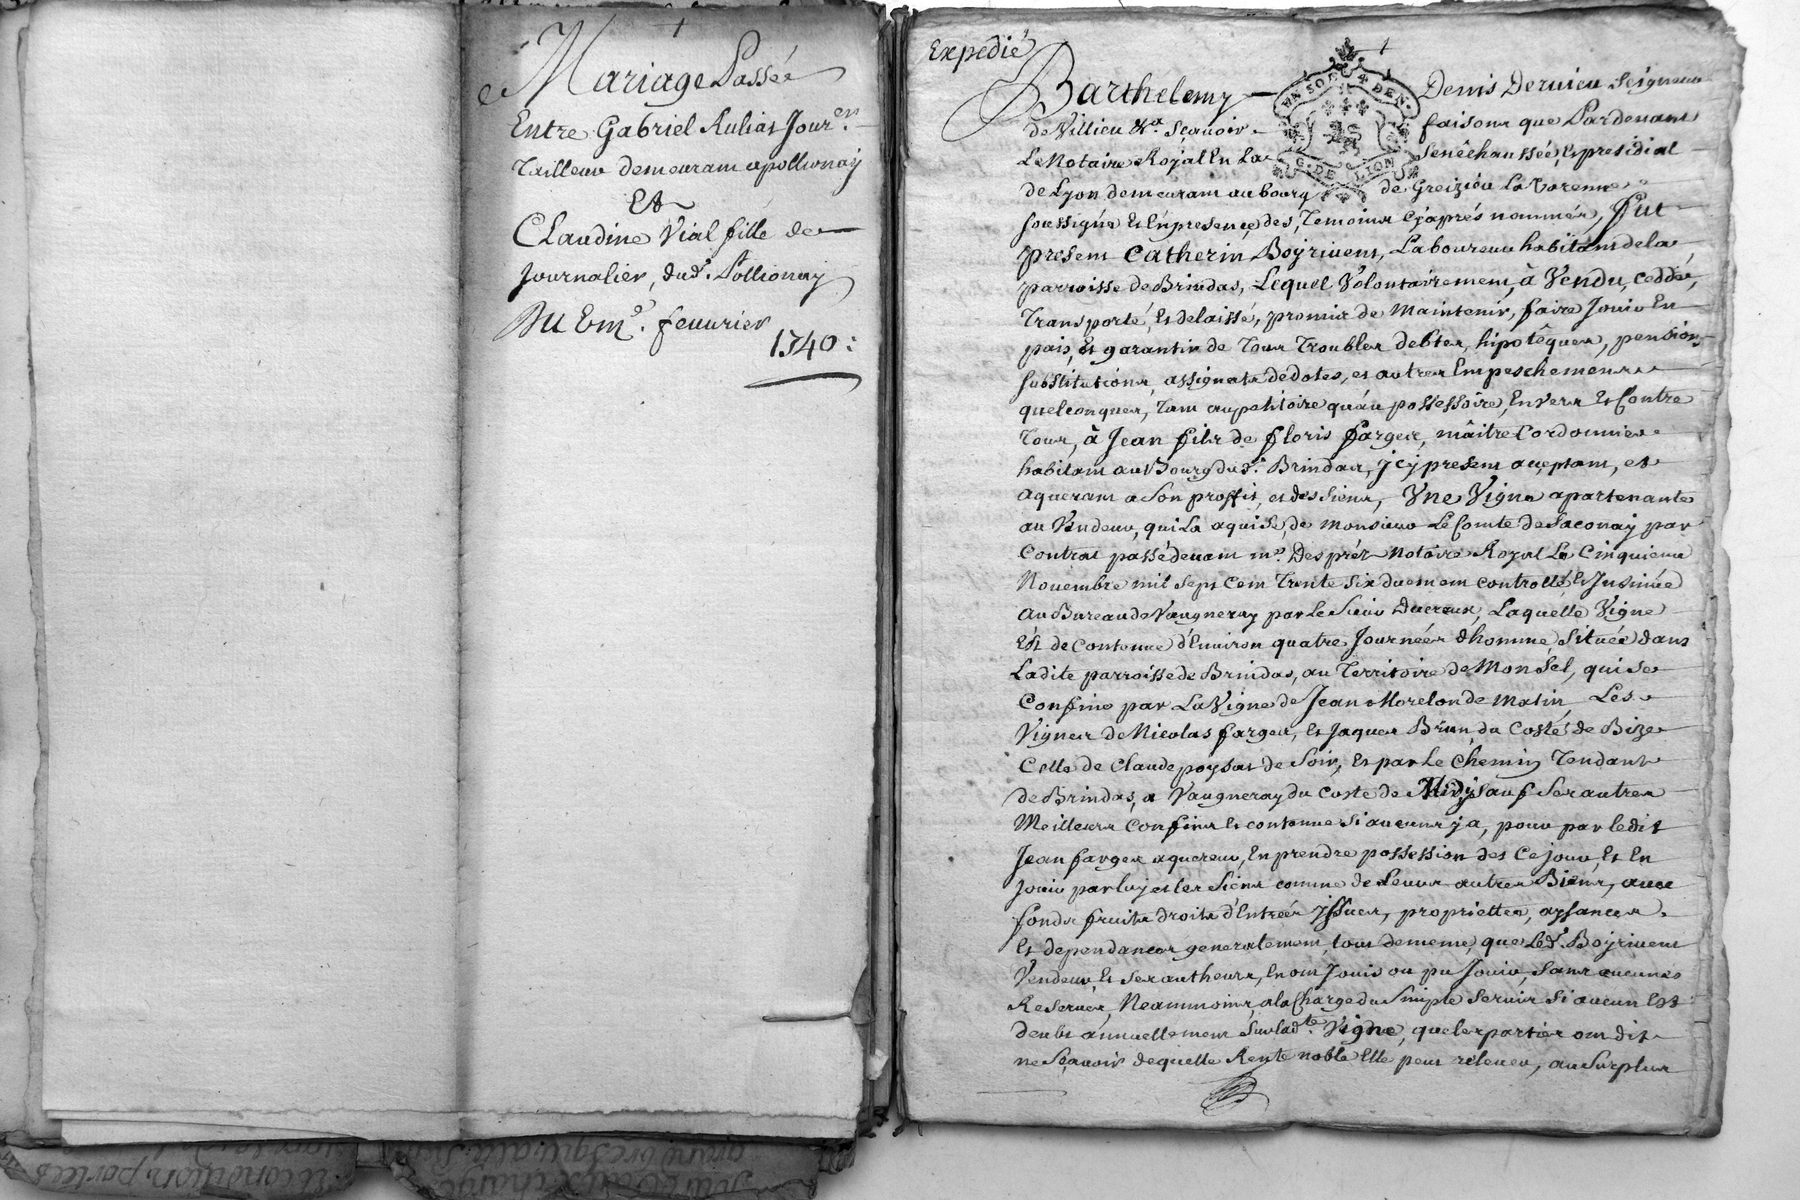 Mariage Passée
Entre Gabriel Rulias Jour.en
Tailleur demeurant a pollionay
Et
Claudine Vial fille de
Journalier, dud. Pollionay
Du Em.e feuurier
1740:
Expedié
Barthelemy Denis Deruieu Seigneur
de Villieu &a. Sçauoir faisons que Pardeuant
Le Notaire Royal En La Senêchaussée, Et presidial
de Lyon demeurant au bourg de Greizieu La Varenne
soussigné Et En presence des, Temoins cy aprés nommés, Fut
present Catherin Boyriuent, Laboureur habitant de la
parroisse de Brindas, Lequel Volontairement, à Vendu, ceddé,
Transporté, Et delaissé, promis de Maintenir, faire Jouir En
paix, Et garantir de Tous Troubles debtes, hipotêques, pensions
substitutions, assignats dé dotes, et autres Empeschements
quelconques, Tant au petitoire qu'au possessoire, Envers Et Contre
Tous, à Jean fils de floris farges, mâitre Cordonnier
habitant au Bourg dud. Brindas, Jcy present aceptant, et
aquerant a Son proffit, et des Siens, Vne Vigne apartenante
au Vendeur, qui La aquise, de monsieur Le Comte de Saconay par
Contrat passé deuant me. Després notaire Royal Le Cinquieme
Nouembre mil sept Cent Trente six duement controllé, Et Jnsinüé
Au Bureau de Vaugneray par le Sieur Ducreux, Laquelle Vigne
Est de Contenue d'Enuiron quatre Journées d'homme, Située dans
Ladite parroisse de Brindas, au Territoire de Monsel, qui se
Confine par La Vigne de Jean Morelon de matin Les
Vignes de Nicolas farges, Et Jaques Brun du Costé de Bize
Celle de Claude poysat de Soir, Et par Le Chemin Tendant
de Brindas, a Vaugneray du Coste de Midy sauf Ses autres
Meilleurs Confins Et contenue Si aucuns y a, pour par ledit
Jean farges aquereur, En prendre possession des Ce jour, Et En
Jouir par luy et les Siens comme de Leurs autres Biens, auec
fonds fruits droits d'Entrées Yssues, propriettes, aysances
Et dependances generalement, tout de meme, que Led. Boyriuent
Vendeur Et Ses autheurs, En ont Jouis ou pu Jouir, Sans aucunes
Reserues, Neammoins, a la Charge du Simple Seruis Si aucun Est
deubt annuellement Sur lad.te Vigne, que les parties ont dit
ne Sçauoir de quelle Rente noble Elle peut releuer, au Surplus